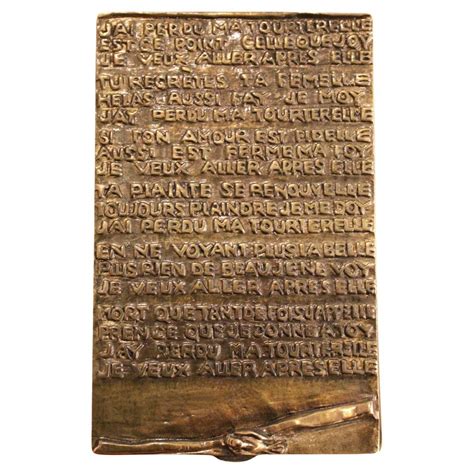 J'AI PERDU MA TOURTERELLE
EST CE POINT CELLE QUE JOY
JE VEUX ALLER APRES ELLE
TU REGRETES TA FEMELLE
HELAS AUSSI FAY JE MOY
J'AY PERDU MA TOURTERELLE
SI TON AMOUR EST FIDELLE
AUSSI EST FERME MA FOY
JE VEUX ALLER APRES ELLE
TA PLAINTE SE RENOUVELLE
TOUJOURS PLAINDRE JE ME DOY
J'AI PERDU MA TOURTERELLE
EN NE VOYANT PLUS LA BELLE
PLUS RIEN DE BEAU JE NE VOY
JE VEUX ALLER APRES ELLE
MORT QUE TANT DE FOIS J'APPELLE
PREN CE QUE JE DONNE A TOY
J'AY PERDU MA TOURTERELLE
JE VEUX ALLER APRES ELLE